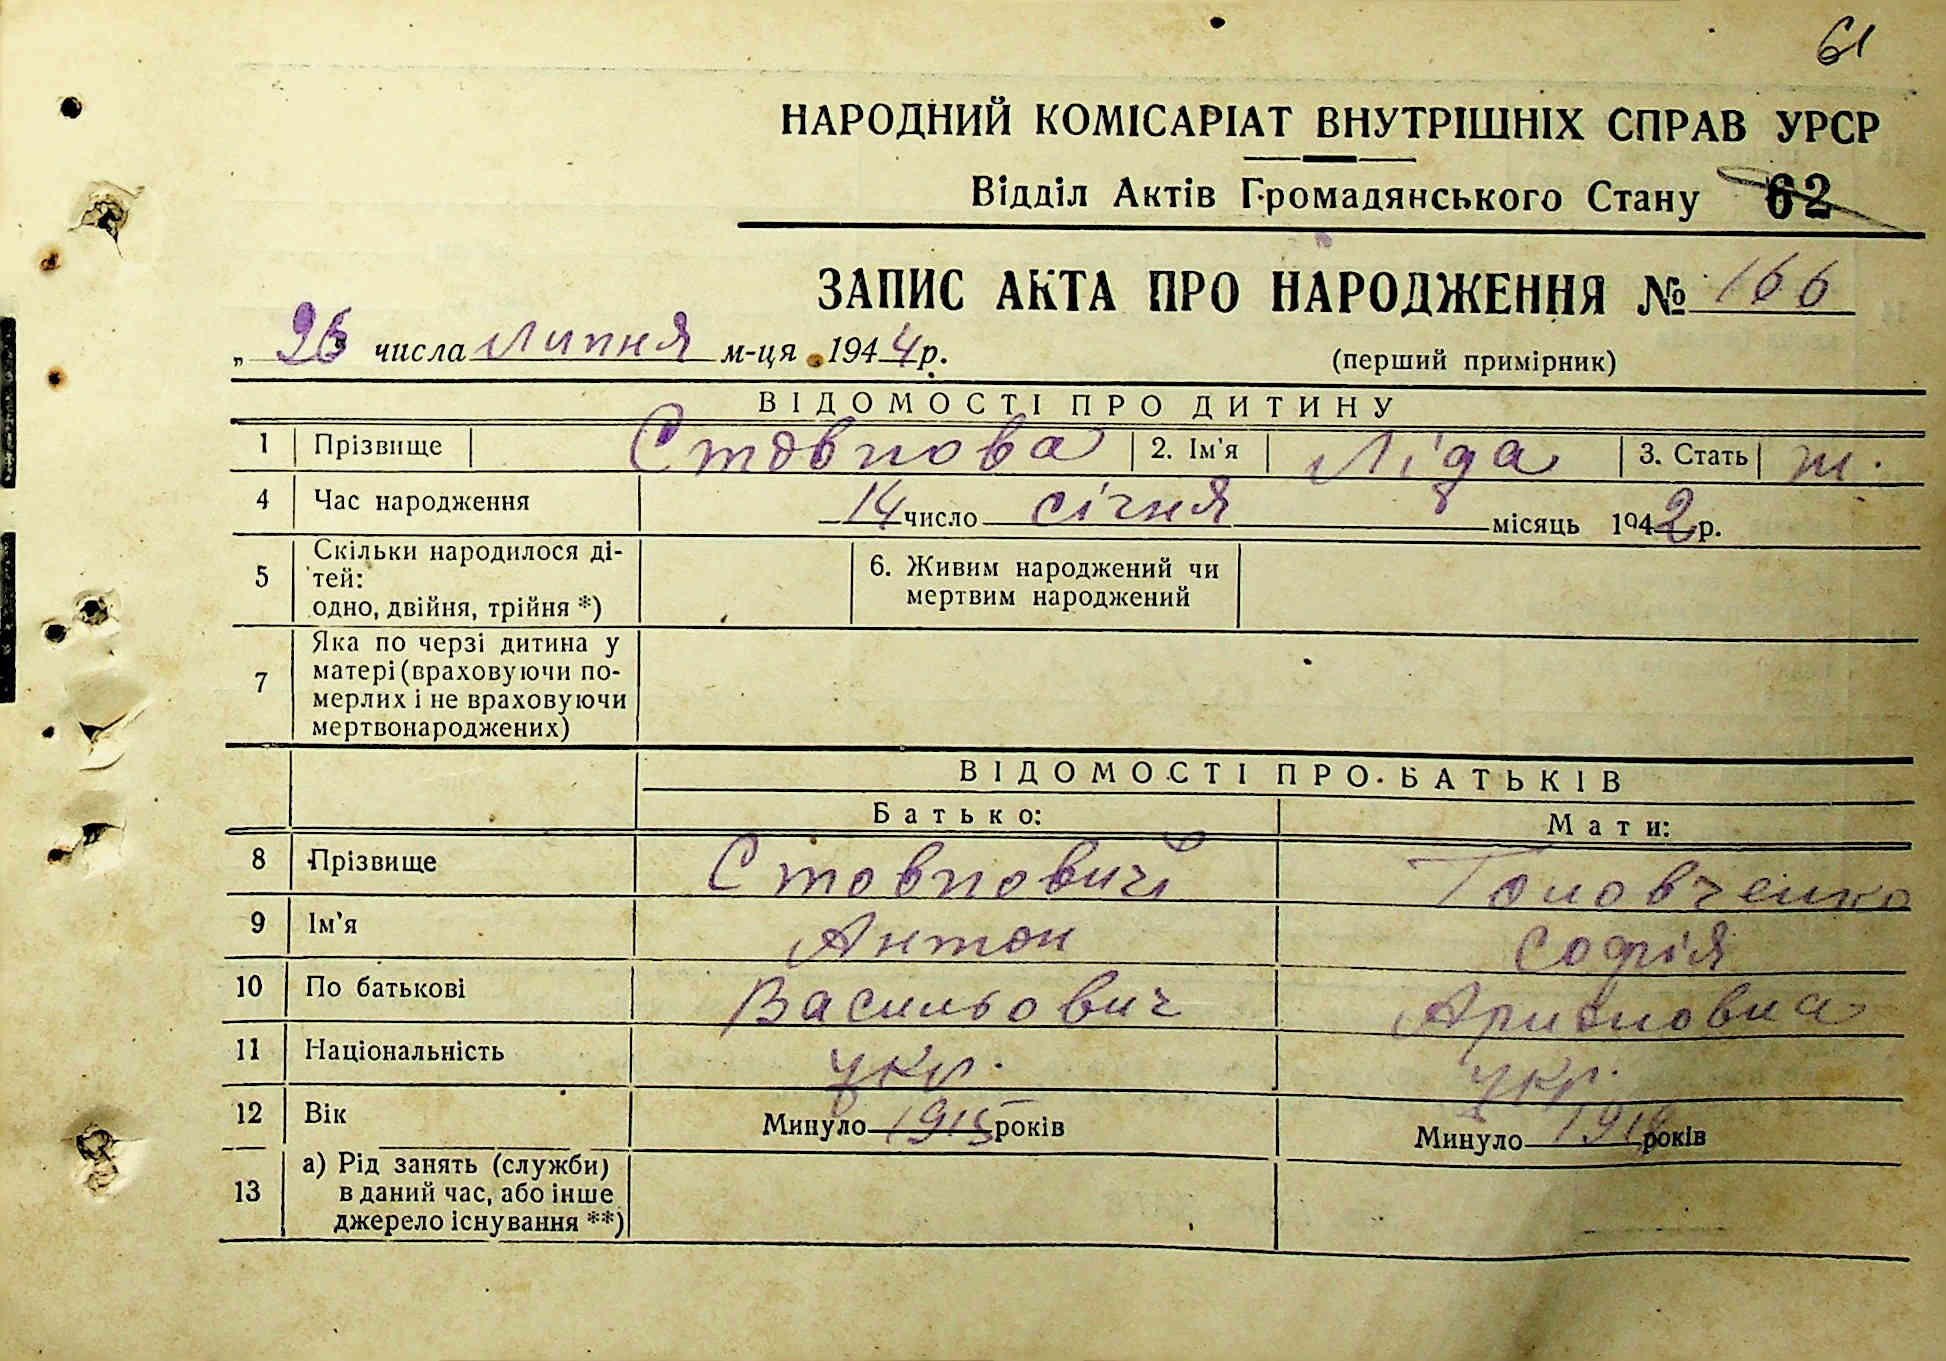 61
НАРОДНИЙ КОМІСАРІАТ ВНУТРІШНІХ СПРАВ УРСР
Відділ Актів Громадянського Стану 62
ЗАПИС АКТА ПРО НАРОДЖЕННЯ № 166
„ 26 " числа липня м-ця 1944 р. (перший примірник)
ВІДОМОСТІ ПРО ДИТИНУ
1 Прізвище Стовпова 2. Ім'я Ліда 3. Стать ж.
4 Час народження 14 число січня місяць 1942 р.
5 Скільки народилося ді-
тей:
одно, двійня, трійня *)
6. Живим народжений чи
мертвим народжений
7 Яка по черзі дитина у
матері (враховуючи по-
мерлих і не враховуючи
мертвонароджених)
ВІДОМОСТІ ПРО БАТЬКІВ
Батько: Мати:
8 Прізвище Стовпович Головченко
9 Ім'я Антон Софія
10 По батькові Васильович
11 Національність укр. укр.
12 Вік Минуло 1915 років Минуло років
13 а) Рід занять (служби)
в даний час, або інше
джерело існування **)